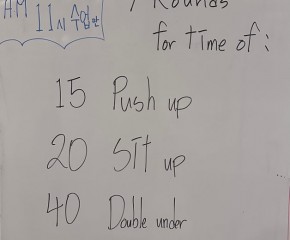 AM 11시 수업
Rounds
for time of :
15 Push up
20 Sit up
40 Double under